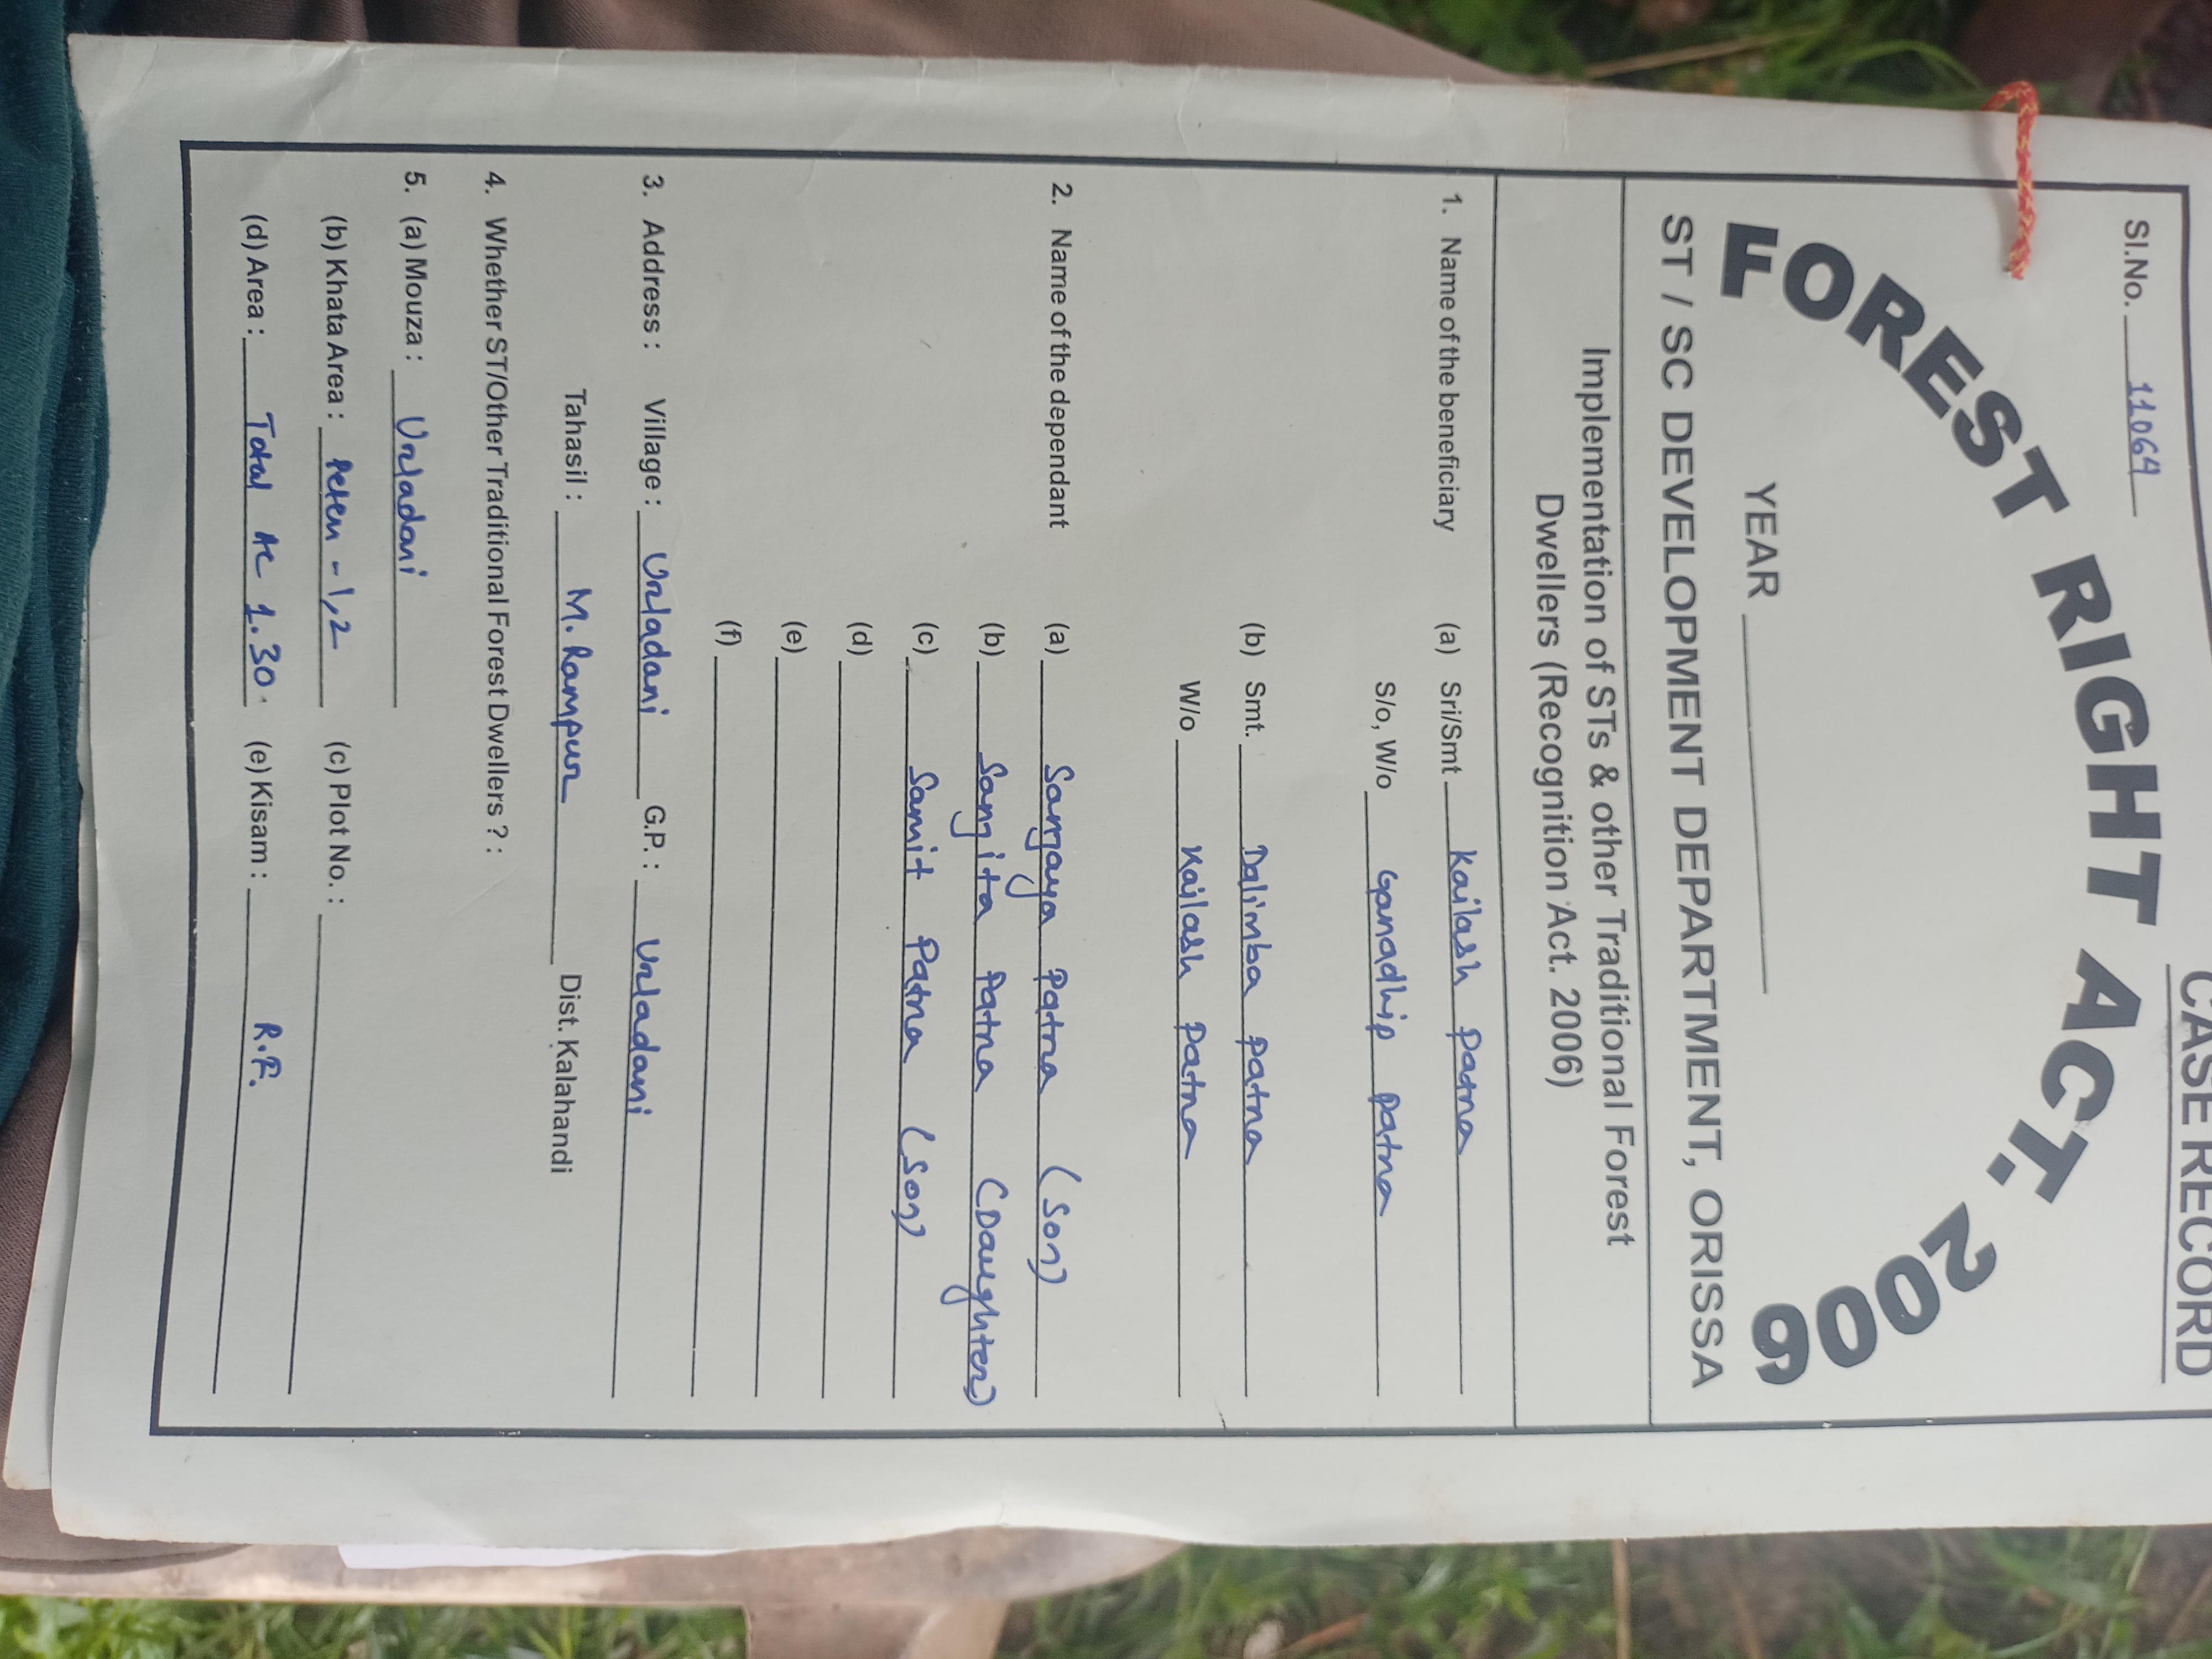 CASE RECORD
Sl.No. 11064
FOREST RIGHT ACT. 2006
YEAR
ST / SC DEVELOPMENT DEPARTMENT, ORISSA
Implementation of STs & other Traditional Forest
Dwellers (Recognition Act. 2006)
1. Name of the beneficiary (a) Sri/Smt. Kailash Patna
S/o, W/o Ganadhip Patna
(b) Smt. Dalimba Patna
W/o Kailash Patna
2. Name of the dependant (a) Sanjaya Patna (Son)
(b) Sanjita Patna (Daughter)
(c) Samit Patna (Son)
(d)
(e)
(f)
3. Address : Village : Urladani G.P. : Urladani
Tahasil : M. Rampur Dist. Kalahandi
4. Whether ST/Other Traditional Forest Dwellers ? :
5. (a) Mouza : Urladani
(b) Khata Area : - 1, 2 (c) Plot No. :
(d) Area : Total AC 1.30 (e) Kisam : R.F.